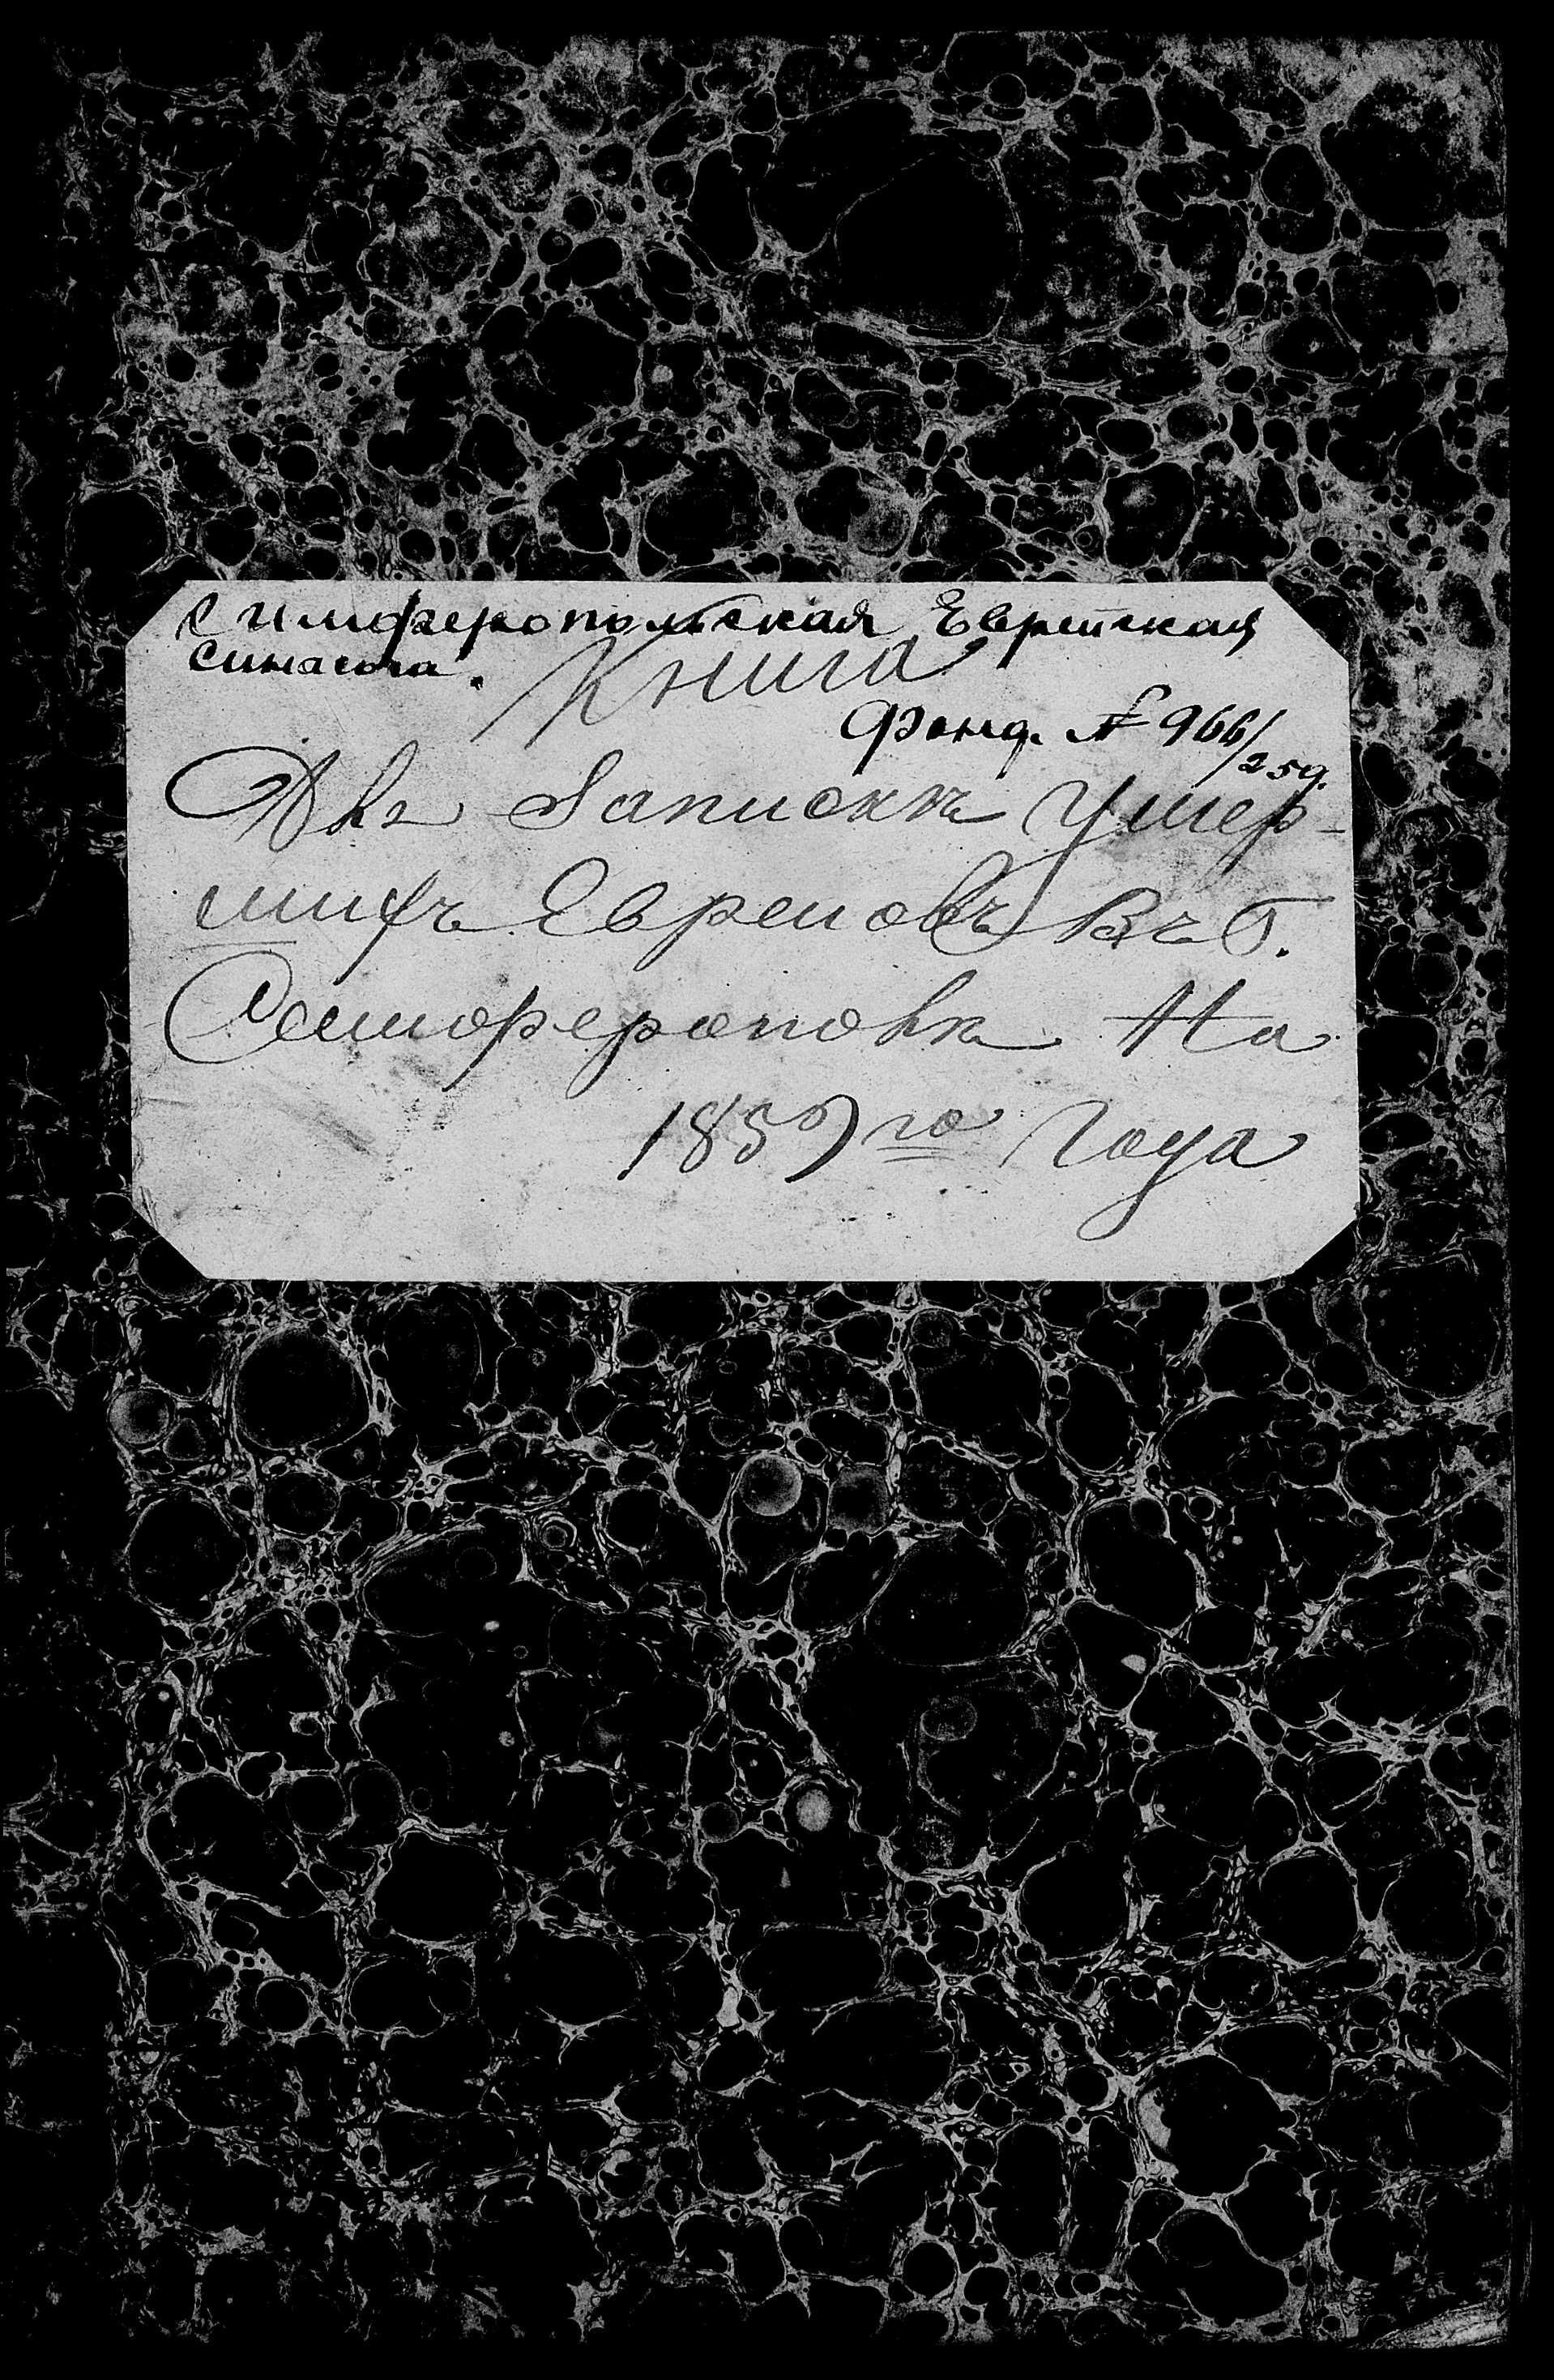 Симферопольская Еврейская
синагога.
Книга
Фонд. № 966/259.
Для Записки Умер-
шихъ Евреиовъ Въ Г.
Семоферополь На
1859го Года